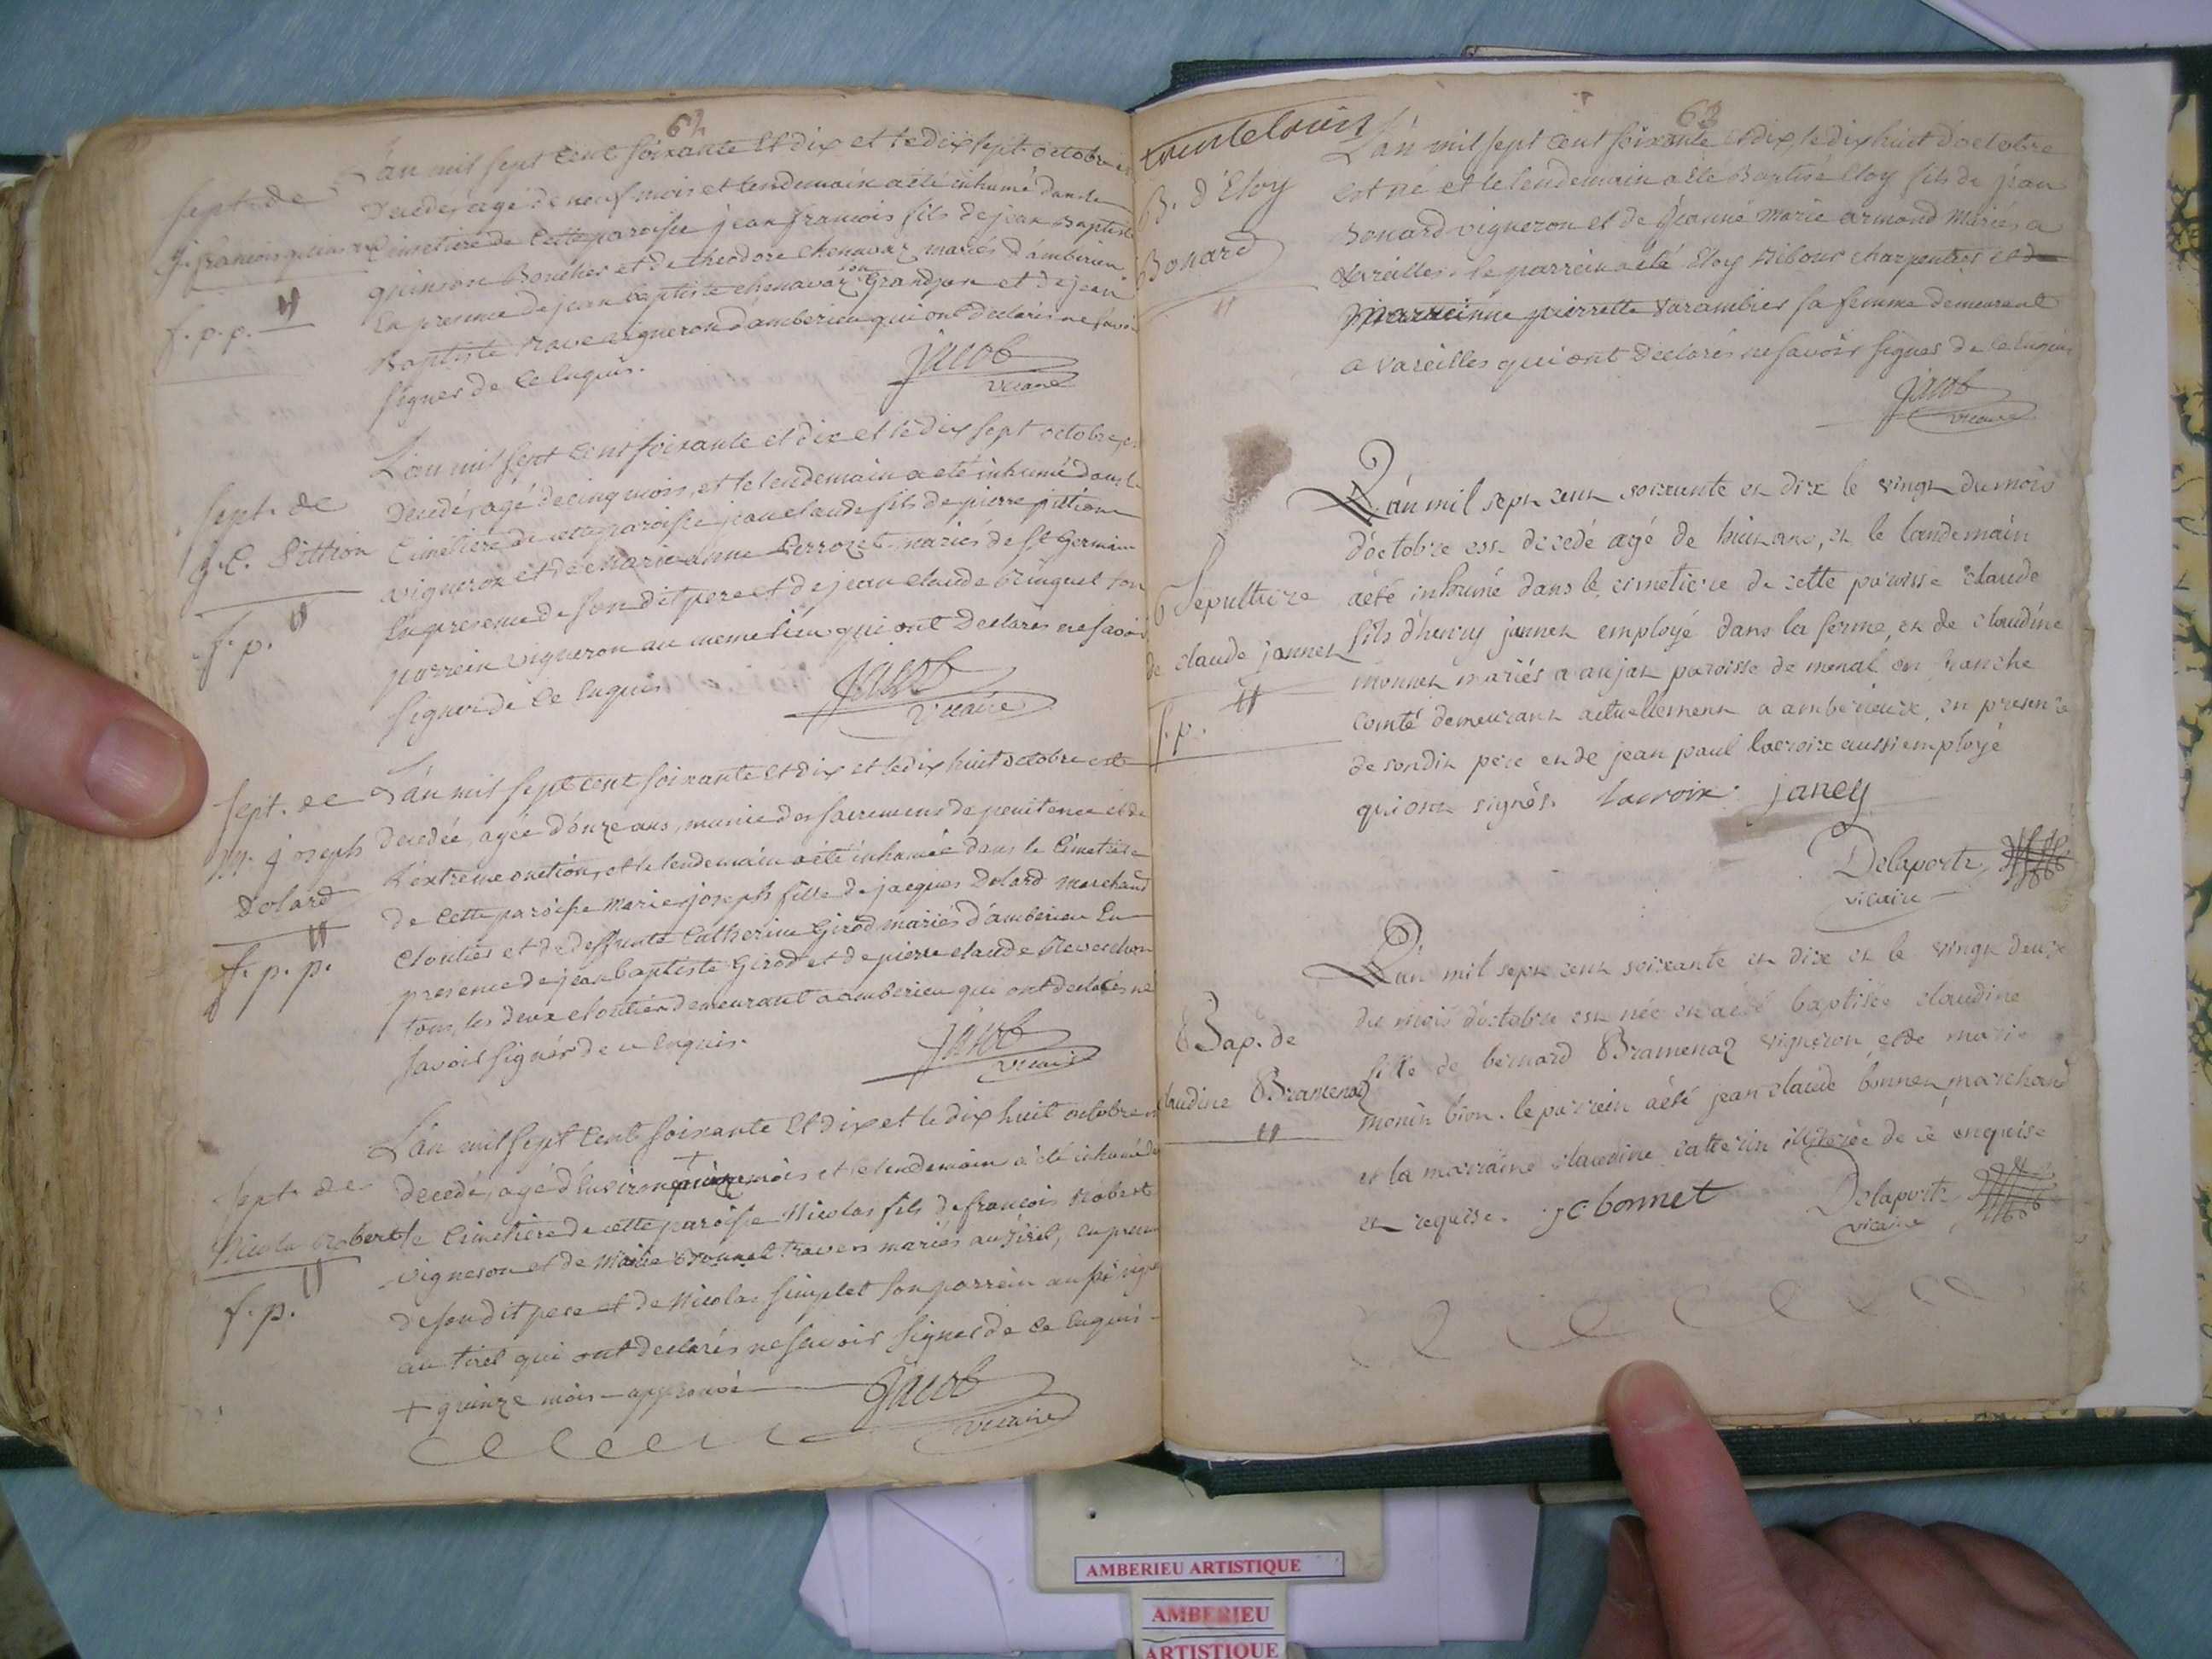 62
L'an mil sept cent soixante et dix et le dix sept octobre est
Sept. de
decedé, agé de neuf mois et lendemain a eté inhumé dans le
j. francois quinson
cimetiere de cette paroisse jean francois fils de jean Baptiste
quinson Boucher et de theodore chenavaz mariés d'amberieu
f. p. p.
En presence de jean baptiste chenavaz son Grandpere et de jean
Baptiste vigneron d'amberieu qui ont declarés ne savoir
signer de ce Enquis.
Jacob
vicaire
L'an mil sept cent soixante et dix et le dix sept octobre, est
Sept. de
decedé, agé de cinq mois, et le lendemain a eté inhumé dans le
j. C. Pittion
Cimetiere de cette paroisse jean claude fils de pierre pittion
vigneron et de Marie anne perrozet mariés de St Germain
f. p.
En presence de son dit pere et de jean claude bringuet son
parrein vigneron au meme lieu qui ont Declarés ne savoir
signer de ce Enquis
Jacob
Vicaire
L'an mil sept cent soixante et dix et le dix huit octobre est
Sept. de
M. joseph
decedée, agée d'onze ans, munie des sacremens de penitence et de
l'extreme onction, et le lendemain a eté inhumée dans le Cimetiere
Dolard
de Cette paroisse Marie joseph fille de jacques Dolard marchand
Cloutier et de deffunte Catherine Girod mariés d'amberieu En
f. p. p.
presence de jean baptiste Girod et de pierre claude Reverchon
tous les deux cloutier demeurant a amberieu qui ont declarés ne
savoir signer de ce Enquis.
Jacob
vicaire
L'an mil sept Cent soixante Et dix et le dix huit octobre est
Sept. de
decedé, agé d'Environ mois et le lendemain a eté inhumé dans
Nicolas Robert
le Cimetiere de cette paroisse Nicolas fils de francois Robert
vigneron et de Marie Bonnet travers mariés au tiret, En presence
f. p.
de son dit pere et de Nicolas simplet son parrein
au tiret qui ont declarés ne savoir signer de ce Enquis
+ quinze mois approuvé
Jacob
vicaire
63
L'an mil sept cent soixante et dix, le dix huit d'octobre
B. d'Eloy
est né et le lendemain a eté Baptisé Eloy fils de jean
Bonard
Bonard vigneron et de jeanne Marie armand Mariés a
Vareilles. le parrein a eté Eloy Ribour charpentier et
marreinne pierrette Varambier sa femme demeurant
a Vareilles qui ont Declarés ne savoir signer de ce Enquis
Jacob
vicaire
L'an mil sept cent soixante et dix le vingt du mois
d'octobre est decedé agé de huit ans, et le landemain
Sepulture
aété inhumé dans le cimetiere de cette paroisse claude
de claude jannet
fils d'henry jannet employé dans la ferme, et de claudine
monnet mariés a anjat paroisse de menal en franche
f. p.
comté demeurant actuellement a amberieux, en presence
de sondit pere et de jean paul lacroix aussi employé
qui ont signés. lacroix janey
Delaporte
vicaire
L'an mil sept cent soixante et dix et le vingt deux
du mois d'octobre est née et aeté baptisée claudine
Bap. de
fille de bernard Bramenaz vigneron, et de marie
claudine Bramenaz
monin bion. le parrein aété jean claude bonnet marchand
et la marraine claudine catterin illiterée de ce enquise
et requise. jc bonnet
Delaporte
vicaire
AMBERIEU ARTISTIQUE
AMBERIEU
ARTISTIQUE